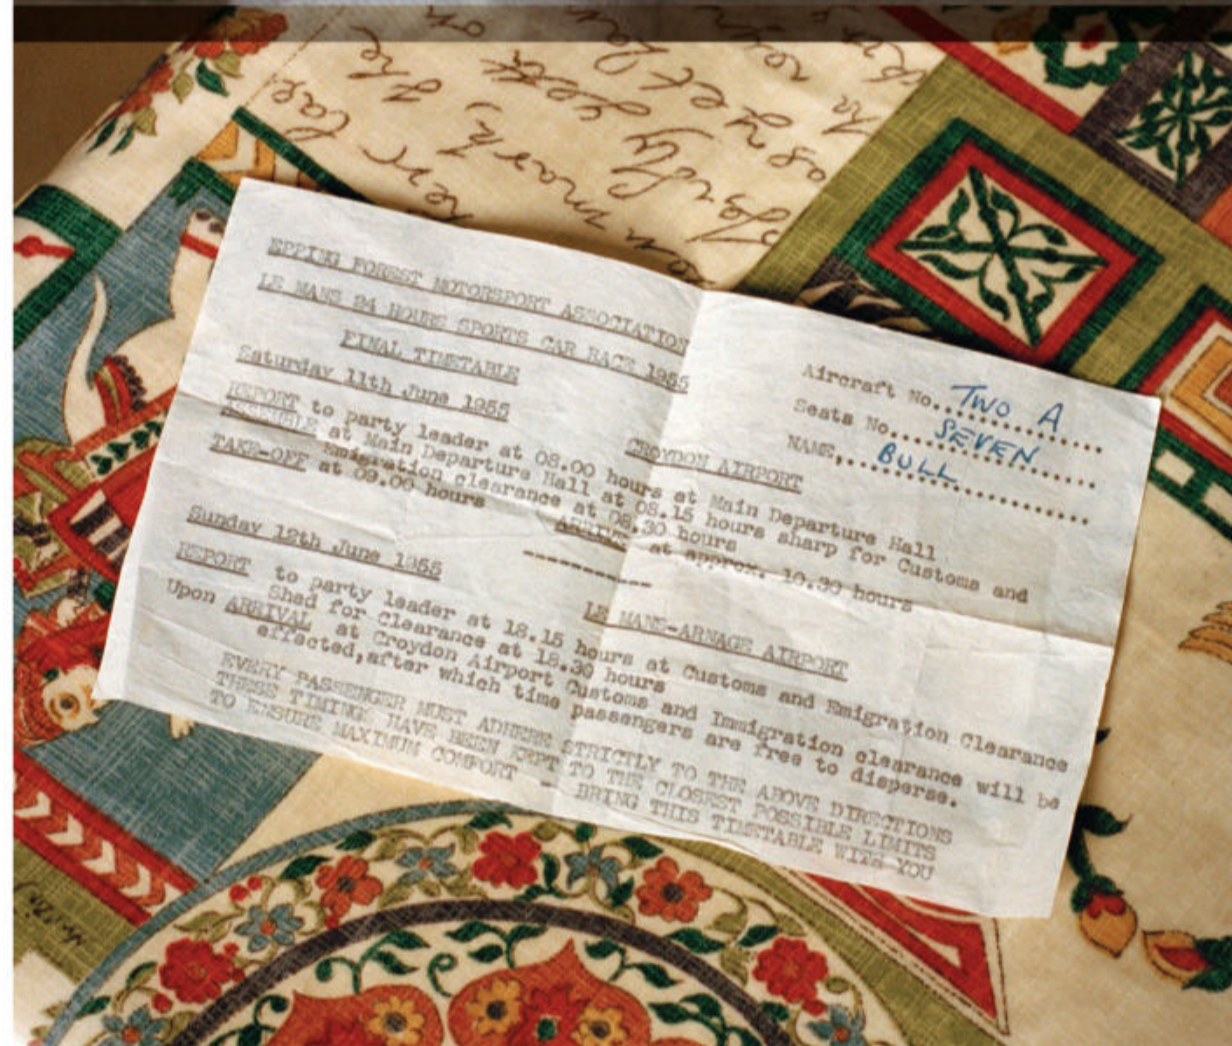 EPPING FOREST MOTORSPORT ASSOCIATION
LE MANS 24 HOURS SPORTS CAR RACE 1955
FINAL TIMETABLE
Aircraft No. TWO A
Seats No. SEVEN
NAME, BULL
Saturday 11th June 1955
CROYDON AIRPORT
REPORT to party leader at 08.00 hours at Main Departure Hall
ASSEMBLE at Main Departure Hall at 08.15 hours sharp for Customs and
Emigration clearance at 08.30 hours
TAKE-OFF at 09.00 hours ARRIVE at approx. 10.30 hours
------------
Sunday 12th June 1955
LE MANS-ARNAGE AIRPORT
REPORT to party leader at 18.15 hours at Customs and Emigration Clearance
Shed for Clearance at 18.30 hours
Upon ARRIVAL at Croydon Airport Customs and Immigration clearance will be
effected, after which time passengers are free to disperse.
EVERY PASSENGER MUST ADHERE STRICTLY TO THE ABOVE DIRECTIONS
THESE TIMING HAVE BEEN KEPT TO THE CLOSEST POSSIBLE LIMITS
TO ENSURE MAXIMUM COMFORT - BRING THIS TIMETABLE WITH YOU